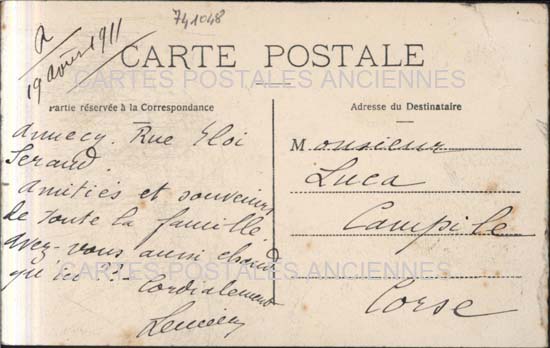 741048
A
19 août 1911
CARTE POSTALE
CARTES POSTALES ANCIENNES
Partie réservée à la Correspondance
Adresse du Destinataire
Annecy. Rue Eloi
Serand.
Amitiés et souvenirs
de toute la famille
avez-vous aussi chaud
qu'ici ??
Cordialement
Monsieur
Luca
Campile
Corse
CARTES POSTALES ANCIENNES